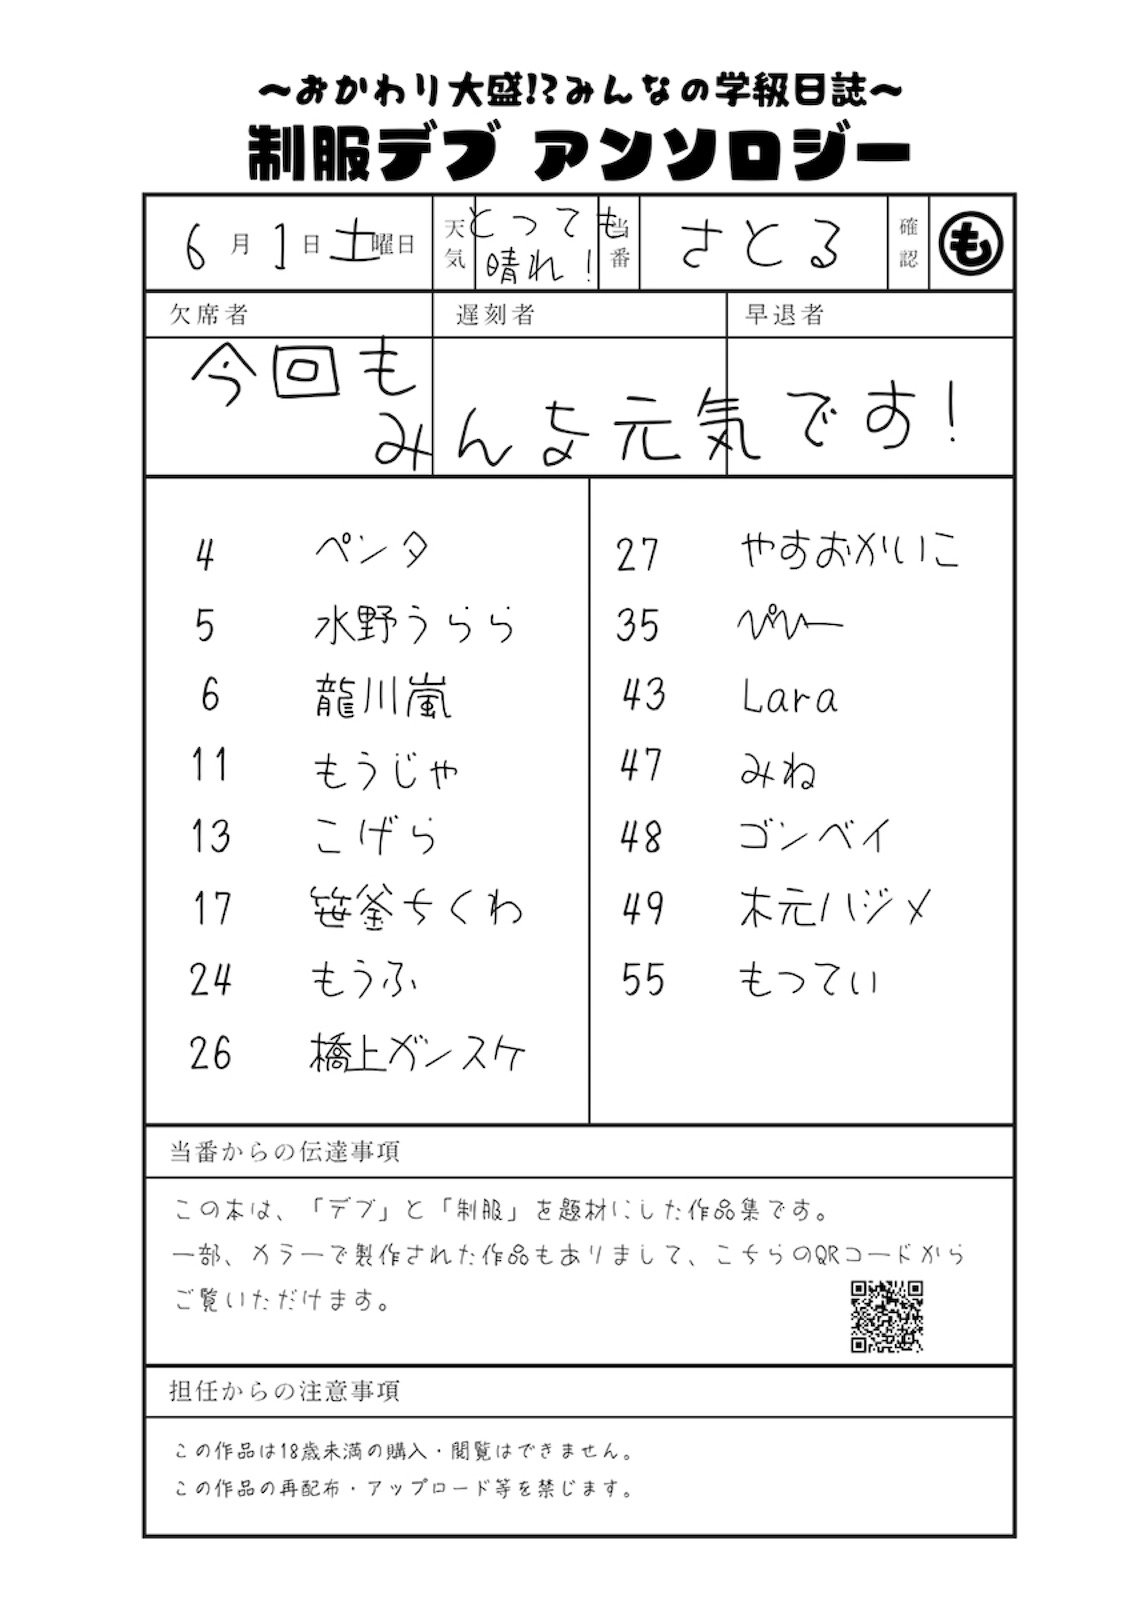 ～おかわり大盛!?みんなの学級日誌～
制服デブ アンソロジー
6月1日土曜日 天気 とっても晴れ！ 当番 さとる 確認 も
欠席者 遅刻者 早退者
今回も
みんな元気です！
4 ペンタ
5 水野うらら
6 龍川嵐
11 もうじゃ
13 こげら
17 笹釜ちくわ
24 もうふ
26 橋上ガンスケ
27 やすおかいこ
35 ぴぴー
43 Lara
47 みね
48 ゴンベイ
49 木元ハジメ
55 もってい
当番からの伝達事項
この本は、「デブ」と「制服」を題材にした作品集です。
一部、カラーで製作された作品もありまして、こちらのQRコードから
ご覧いただけます。
担任からの注意事項
この作品は18歳未満の購入・閲覧はできません。
この作品の再配布・アップロード等を禁じます。